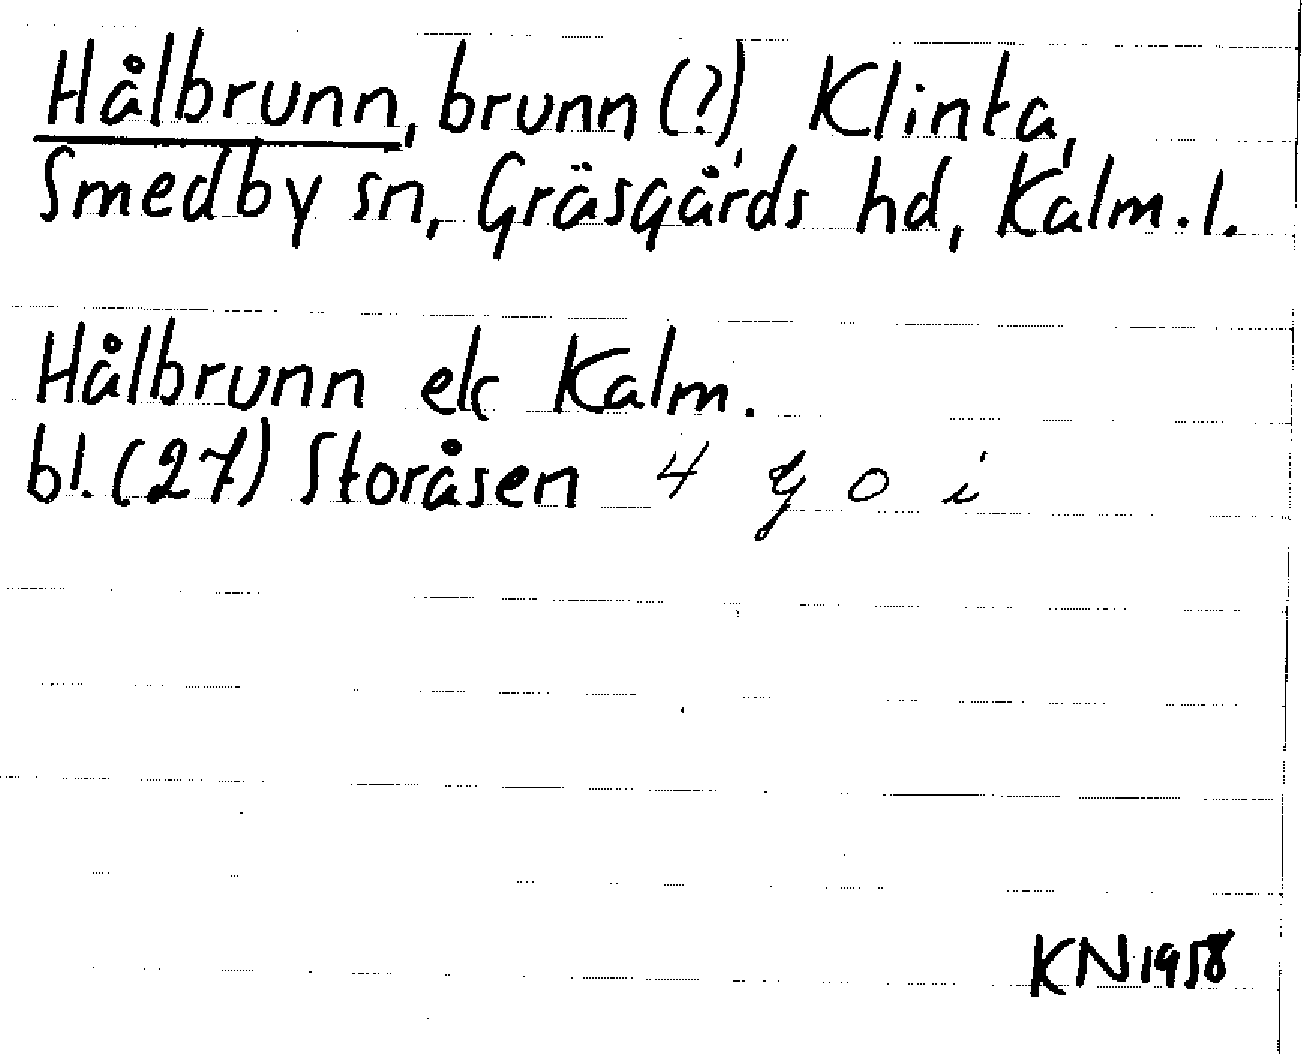 Hålbrunn, brunn (?) Klinta,
Smedby sn, Gräsgårds hd, Kalm. l.
Hålbrunn ek Kalm.
bl. (27) Storåsen 4 g o i
KN 1958